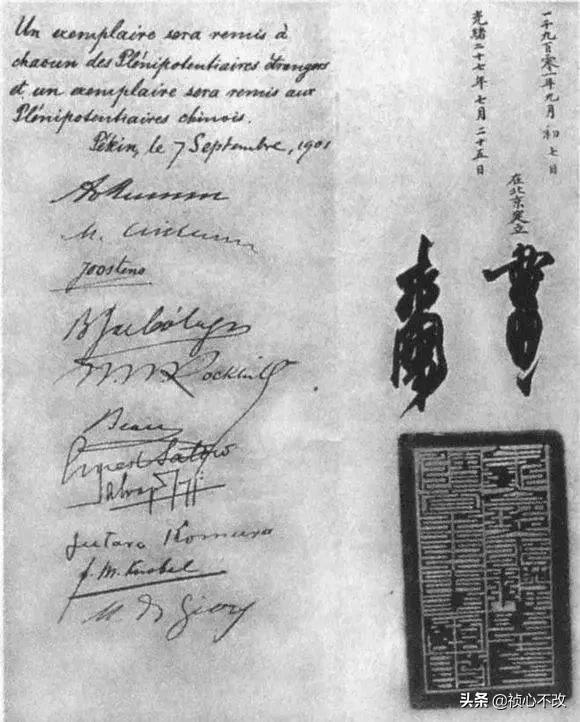 Un exemplaire sera remis à
chacun des Plénipotentiaires étrangers
et un exemplaire sera remis aux
Plénipotentiaires chinois.
Pékin, le 7 Septembre, 1901
Joostens
W. W. Rockhill
Beau
Ernest Satow
Salvago Raggi
Jutaro Komura
F. M. Knobel
M. de Giers
一千九百零一年九月初七日
光緒二十七年七月二十五日
在北京定立
头条 @祯心不改